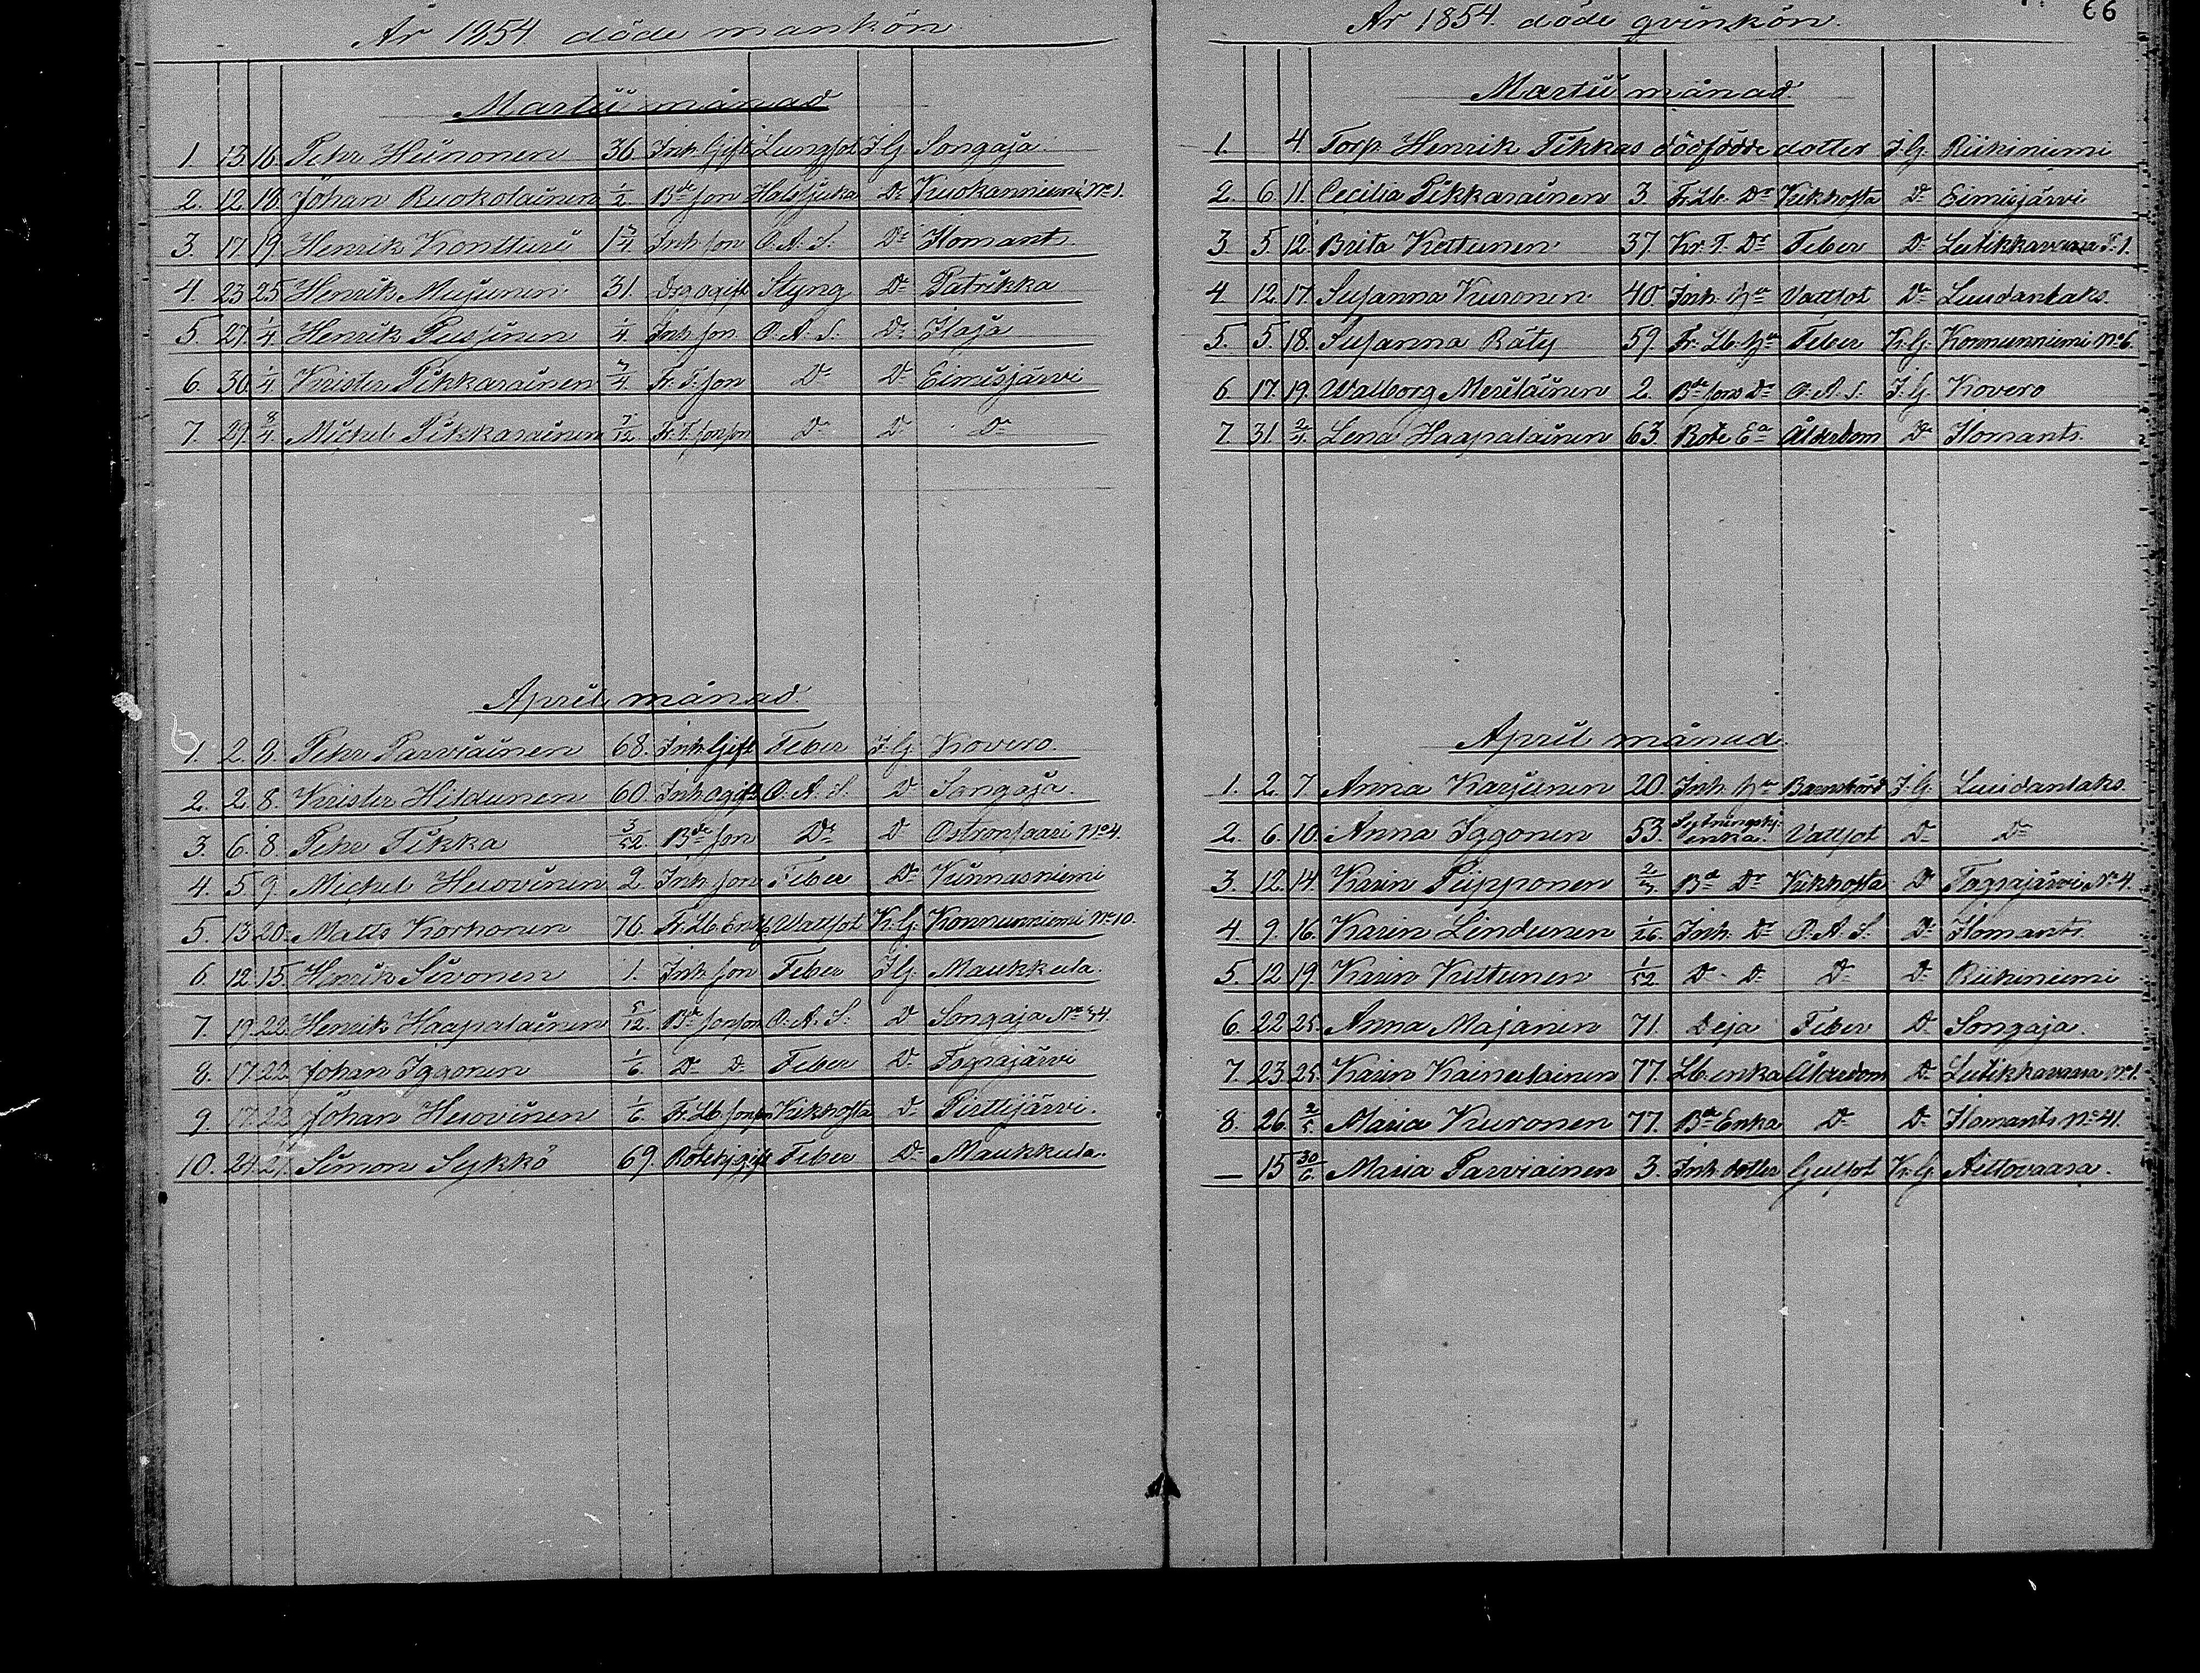 År 1854 döde mankön
Martii månad
1. 13. 16. Pehr Hiinonen 36. Inh. Gift Lungsot I.G. Songaja
2. 12. 18. Johan Ruokolainen 1/2 Bde son Halssjuka Do Kuokanniemi No 1.
3. 17 19. Henrik Kontturi 1 3/4 Inh son O.A.S. Do Ilomants
4. 23 25. Henrik Mujunen 31. ogift Styng Do Patrikka
5. 27. 1/4 Henrik Pussinen 1/4 Inh son O.A.S. Do Ilaja
6. 30. 1/4 Krister Pikkarainen 3/4 Fr. T. son Do Do Eimisjärvi
7. 29. 8/4 Michel Pikkarainen 7/12 Fr. T. sonson Do Do Do
April månad
1. 2. 8. Pehr Parviainen 68. Inh Gift Feber I.G. Kovero.
2. 2. 8. Krister Hildunen 60. Inh ogift O.A.S. Do Songaja.
3. 6. 8. Pehr Tikka 3/52 Bde son Do Do Ostronsaari No 4.
4. 5 9. Michel Huovinen 2. Inh son Feber Do Kunnasniemi
5. 13 20. Matts Korhonen 76. Fr. Lb. Enkl Wattsot K.G. Konnunniemi No 10.
6. 12. 15. Henrik Sivonen 1. Inh son Feber I.G. Maukkula.
7. 19. 22. Henrik Haapalainen 5/12 Bde sonson O.A.S. Do Songaja No 34
8. 17. 22. Johan Iggonen 1/6 Do Do Feber Do Fograjärvi
9. 17. 22 Johan Huovinen 1/6 Fr. Lb. sonson Kikhosta Do Pirttijärvi.
10. 24. 27. Simon Sykkö 69. Rotehj gift Feber Do Maukkula.
66
År 1854 döde qvinkön.
Martii månad.
1. 4. Torp. Henrik Tikkas dödfödde dotter I.G. Riihiniemi
2. 6. 11. Cecilia Pikkarainen 3. Fr. Lb. Dr Kikhosta Do Eimisjärvi
3. 5. 12. Brita Kettunen 37. Kr. T. Dr Feber Do Lutikkavaara F. 1.
4 12. 17. Susanna Kuronen 40. Inh. Hu Vattsot Do Luudanlaks.
5. 5. 18. Susanna Räty 59. Fr. Lb. Hu Feber K.G. Konnunniemi No 6.
6. 17. 19. Walborg Meriläinen 2. Bde sons Dr O.A.S. I.G. Kovero
7. 31. 2/4 Lena Haapalainen 63. Rote Ea Ålderdom Do Ilomants.
April månad.
1. 2. 7 Anna Karjunen 20. Inh. Hu Barnsbörd I.G. Luudanlaks.
2. 6. 10. Anna Iggonen 53. Sytningshj. enka. Vattsot Do Do
3. 12. 14. Karin Piipponen Bd Dr Kikhosta Do Fograjärvi No 4.
4. 9. 16. Karin Lindunen 1/26 Inh. Dr O.A.S. Do Ilomants
5. 12. 19. Karin Kettunen 1/52 Do Do Do Do Riihiniemi
6. 22 25. Anna Majanin 71. Deja Feber Do Songaja.
7. 23. 25. Karin Kainulainen 77. Lb. enka Ålderdom Do Lutikkavaara No 1.
8. 26. 2/5 Maria Kuronen 77. Bde Enka Do Do Ilomants No 41.
— 15 30/6. Maria Parviainen 3. Inh. dotter Gulsot Kr. G. Aittovaara.